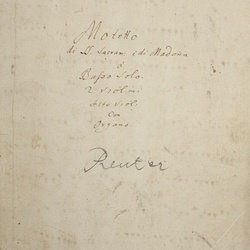 Motetto
di S. Sacram. è di Madonna
à
Basso Solo.
2 Violini
Alto Viola
Con
Organo
Reuter